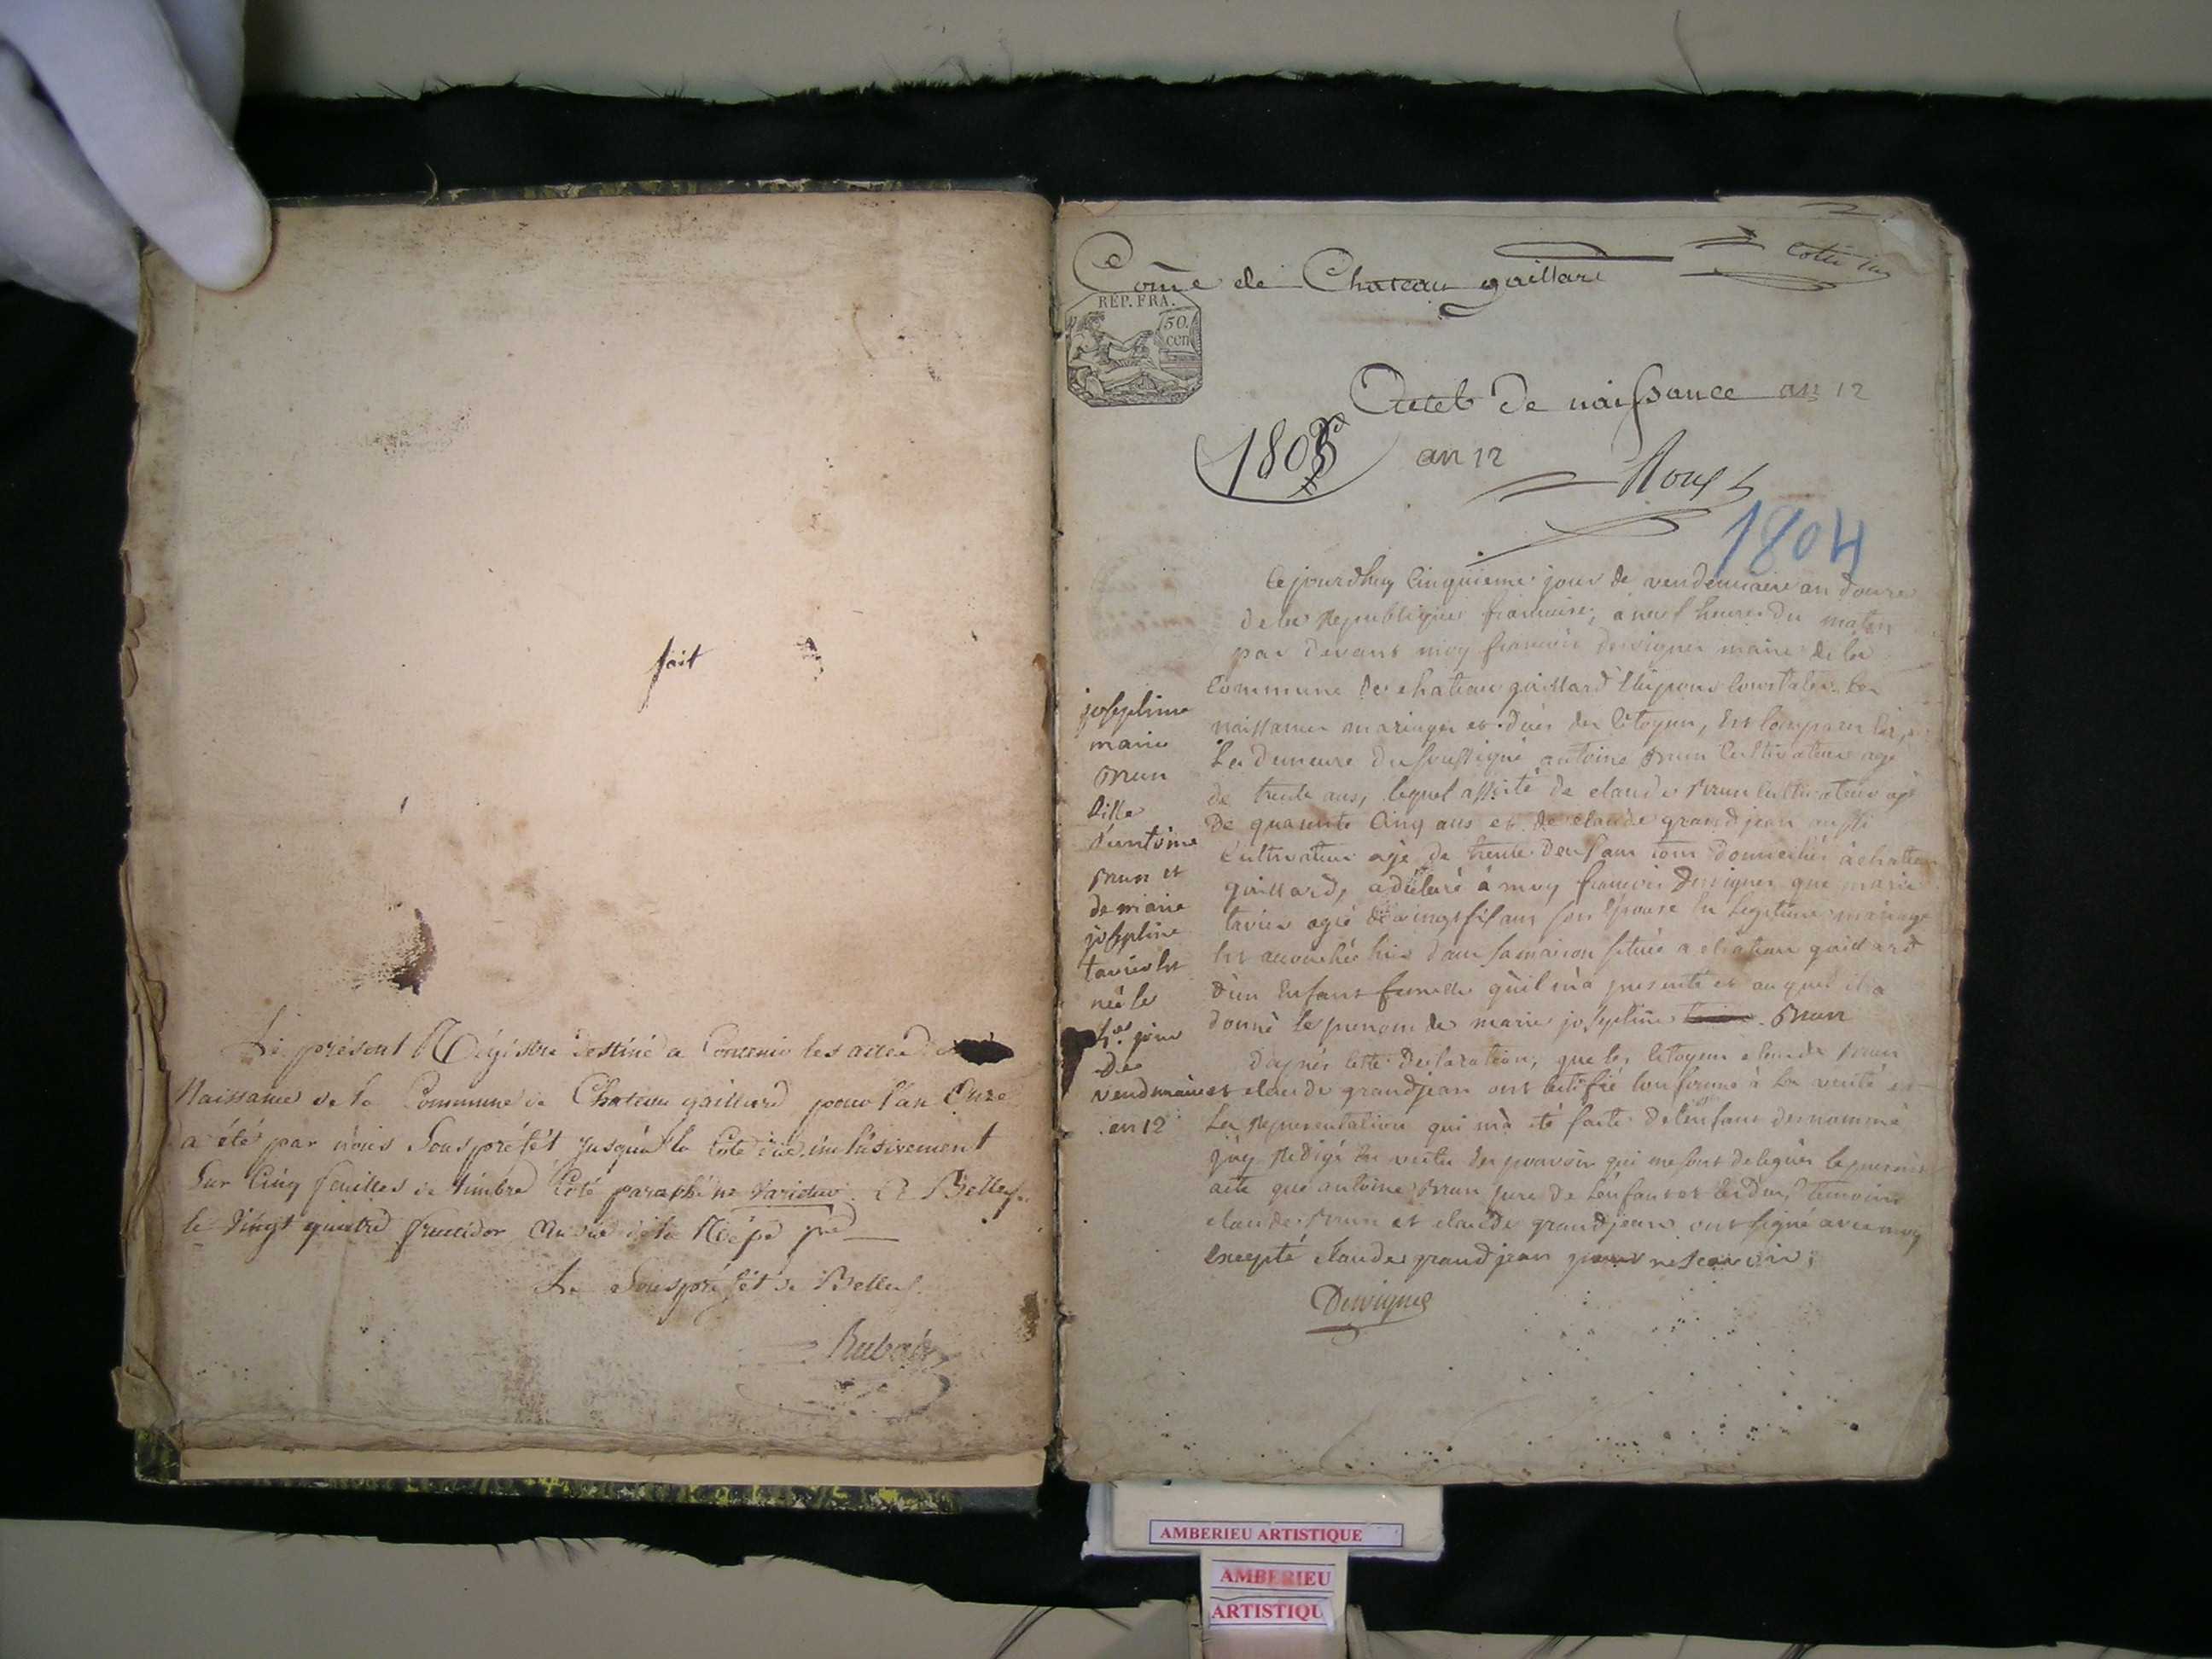 fait
Le présent Régistre destiné a Contenir les actes de
Naissance de la Commune de Chateau gaillard pour l'an
a été par nous Sousprefét jusqu'a la Cote dix inclusivement
Sur Cinq feuilles de timbre Coté paraphé ne varietur. A Belley
le Vingt quatre fructidor an de la Répe
Le Sousprefét de Belley
Come de Chateau gaillard
RÉP. FRA.
50.
cen
Actes de naissance an 12
1803
an 12
1804
Cejourdhuy Cinquieme jour de vendemiaire an douze
de la Republique francaise, a neuf heures du matin
par devant moy francois Dervignes maire de la
Commune de chateau gaillard
naissances mariages et des Citoyens, Est Comparu
La demeure du soussigné antoine Brun Cultivateur agé
de trente ans, lequel assisté de claude Brun Cultivateur agé
De quarente Cinq ans et de claude grandjean aussi
Cultivateur agé de trente deux ans tous domiciliés a chateau
gaillard, a déclaré à moy francois Dervignes que marie
agé de vingt six ans son Epouse En Legitime mariage
Est accouchée hier dans sa maison située a chateau gaillard
D'un Enfant femelle qu'il m'a presenté et auquel il a
donné le prenom de marie josephine Brun
D'aprés Cette Declaration, que les Citoyens claude Brun
et claude grandjean ont Certifié Conforme à La verité et
La Representation qui m'a été faite de l'enfant denommé
j'ay Redigé En vertu des pouvoirs qui me sont delegués le present
acte que antoine Brun pere de L'enfant et Les deux temoins
claude Brun et claude grandjean ont signé avec moy
Excepté claude grandjean pour ne scavoir
Dervignes
josephine
marie
Brun
fille
d'antoine
Brun et
de marie
josephine
née le
4e jour
De
vendmaire
an 12
AMBERIEU ARTISTIQUE
AMBERIEU
ARTISTIQU